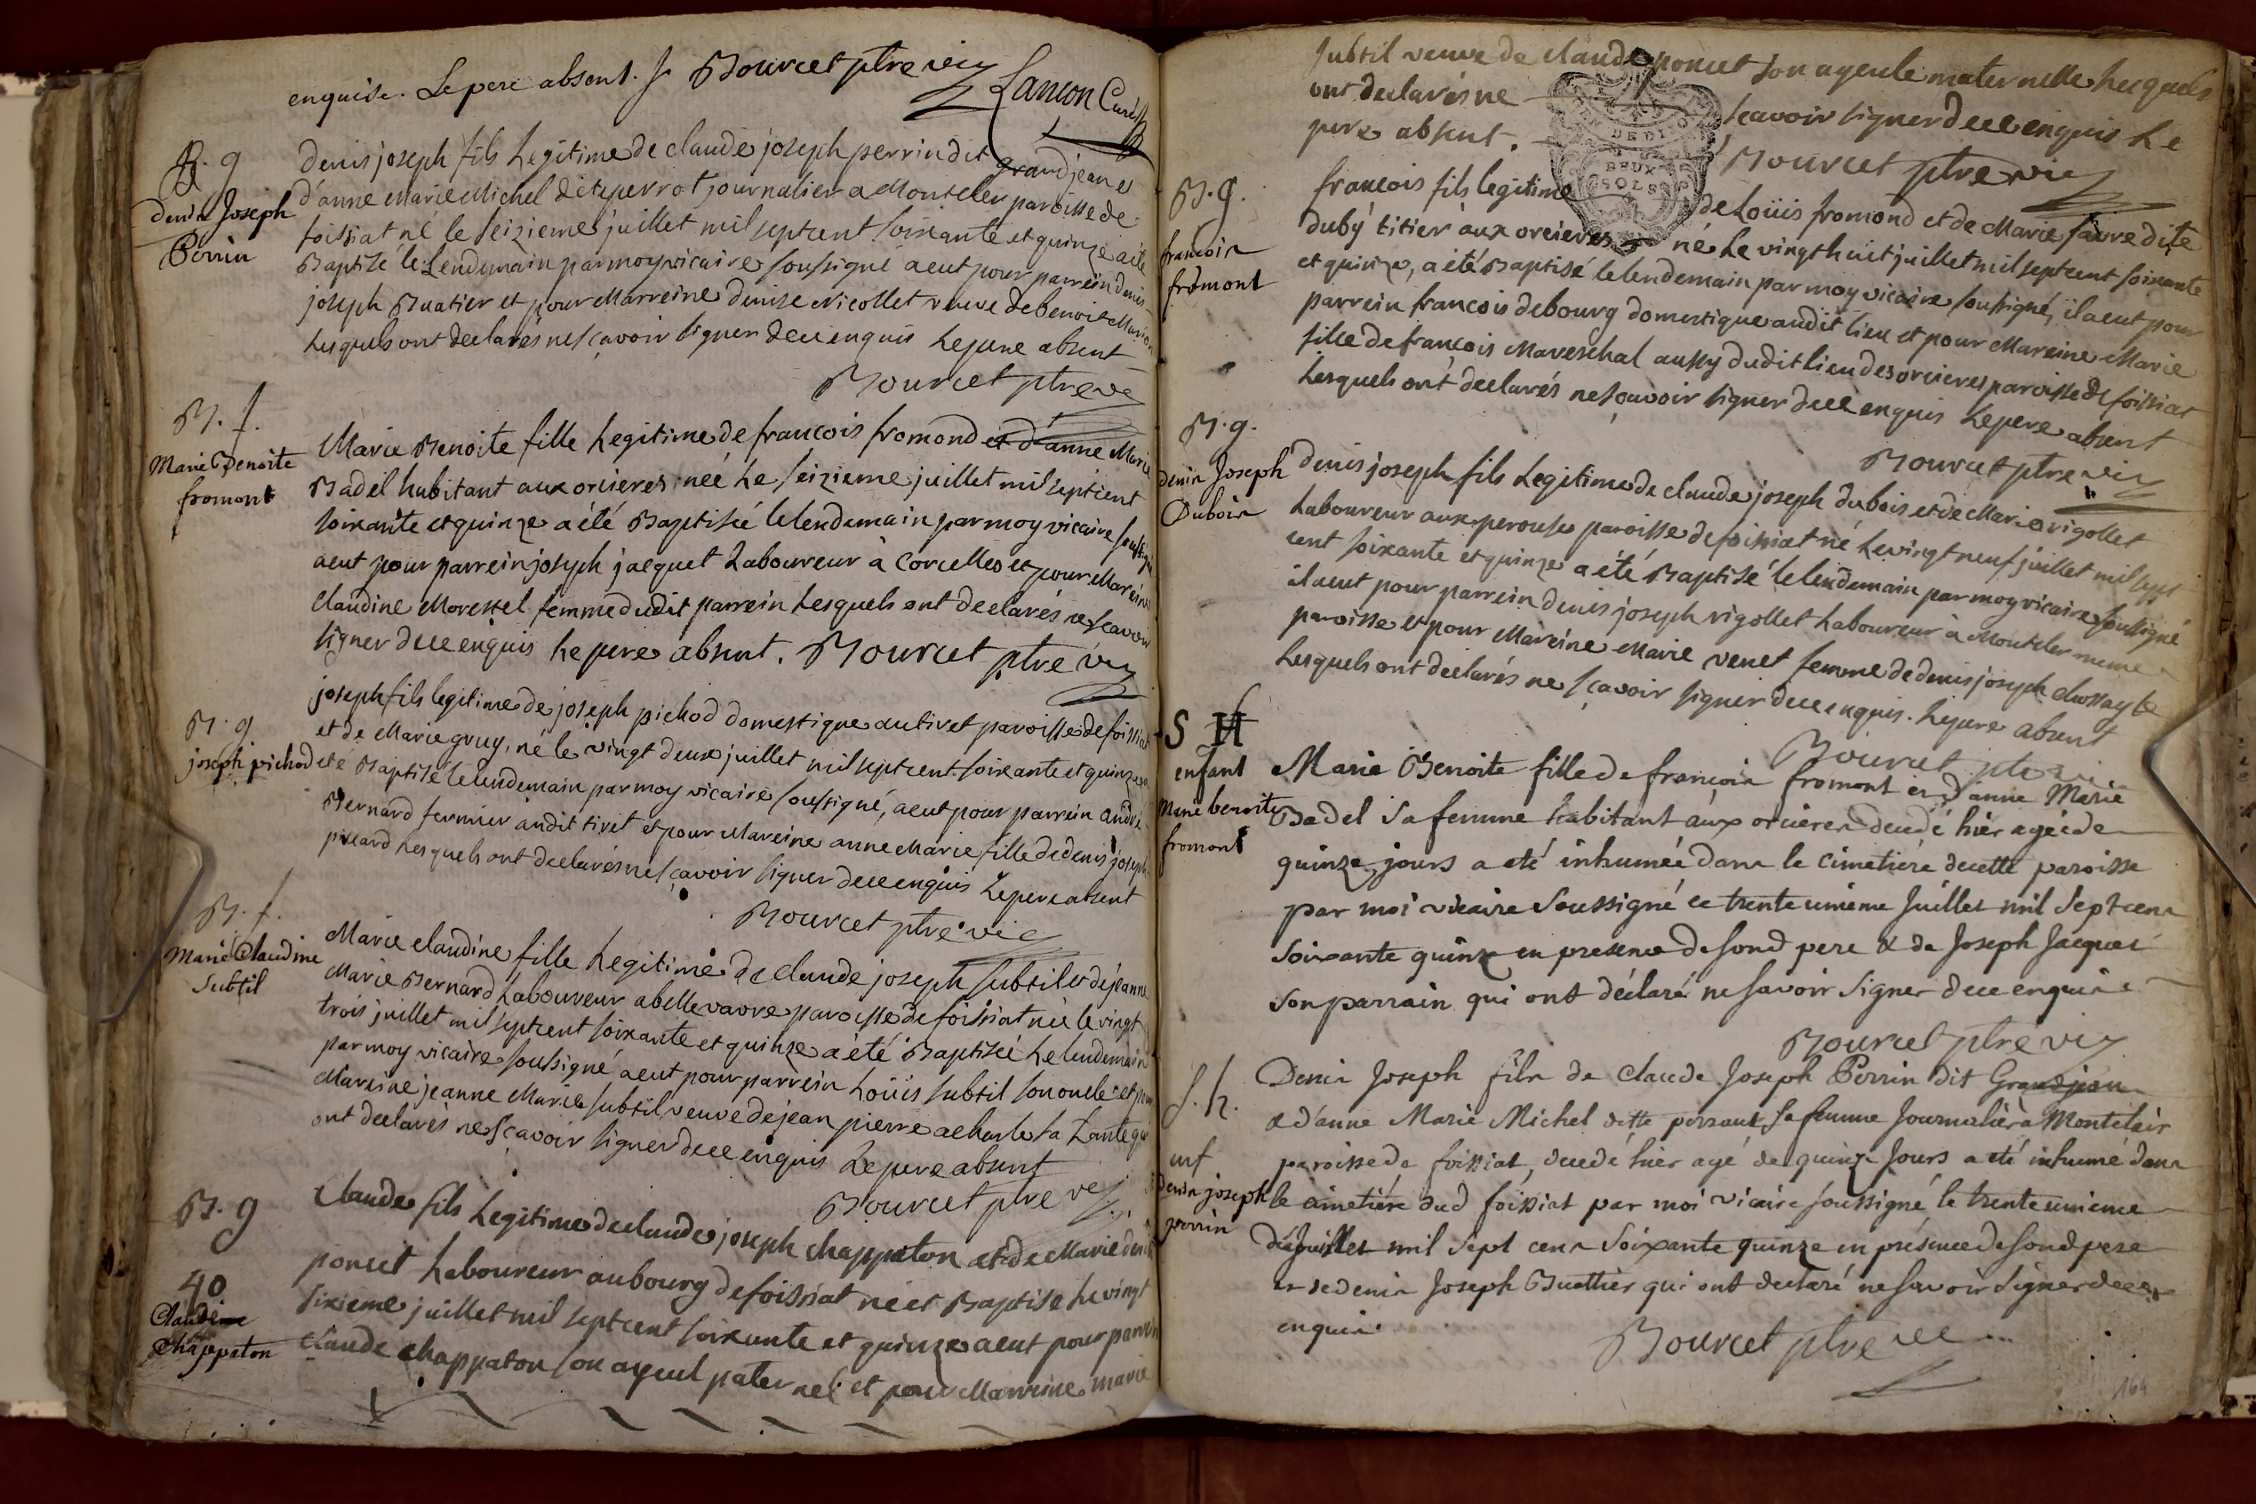 enquise. Le pere absent. Bourcet ptre vic
Lançon Curé
B. g
denis Joseph
Perrin
denis joseph fils Legitime de claude joseph perrin dit grandjean et
d'anne Marie Michel dite perrot journalier a Monteler paroisse de
foissiat né le seizieme juillet mil septcent soixante et quinze a été
Baptisé le Lendemain par moy vicaire soussigné a eut pour parrein denis
joseph Buatier et pour Marreine denise Nicollet veuve de benoit Marion
Lesquels ont declarés ne sçavoir signer de ce enquis Le pere absent
Bourcet ptre vic
B. f.
Marie Benoite
fromont
Marie Benoite fille Legitime de francois fromond et d'anne Marie
Badel habitant aux orcieres née Le seizieme juillet mil septcent
soixante et quinze a été Baptiseé le lendemain par moy vicaire soussigné
a eut pour parrein joseph jacquet Laboureur à Corcelles et pour Mareine
Claudine Morestel femme dudit parrein Lesquels ont declarés ne scavoir
signer de ce enquis Le pere absent. Bourcet ptre vic
B. g
joseph pichod
joseph fils legitime de joseph pichod domestique au tivet paroisse de foissiat
et de Marie gruy, né le vingt deux juillet mil septcent soixante et quinze a
eté Baptisé le lendemain par moy vicaire soussigné, a eut pour parrein andré
Bernard fermier audit tivet et pour Mareine anne Marie fille de denis joseph
picard Lesquels ont declarés ne sçavoir signer de ce enquis Le pere absent
Bourcet ptre vic
B. f.
Marie Claudine
Subtil
Marie claudine fille Legitime de claude joseph subtil et de jeanne
Marie Bernard Laboureur a bellevavre paroisse de foissiat née le vingt
trois juillet mil septcent soixante et quinze a été Baptiseé Le lendemain
par moy vicaire soussigné a eut pour parrein Loüis subtil son oncle et pour
Mareine jeanne Marie subtil veuve de jean pierre acharle sa tante qui
ont declarés ne sçavoir signer de ce enquis Le pere absent
Bourcet ptre vic
B. g
40
Claudine
Chappaton
Claude fils Legitime de claude joseph chappaton et de Marie denise
poncet Laboureur au bourg de foissiat né et Baptisé Le vingt
sixieme juillet mil septcent soixante et quinze a eut pour parrein
claude chappaton son ayeul paternel et pour Marreine marie
subtil veuve de claude poncet son ayeule maternelle Lesquels
ont declarés ne sçavoir signer de ce enquis Le
pere absent. Bourcet ptre vic
DEUX
SOLS
B. g.
francois
fromont
francois fils legitime de Loüis fromond et de Marie favre dite
duby titier aux orcieres né Le vingt huit juillet mil septcent soixante
et quinze, a été Baptisé le lendemain par moy vicaire soussigné, il a eut pour
parrein francois debourg domestique audit lieu et pour Mareine Marie
fille de francois Mareschal aussy dudit lieu des orcieres paroisse de foissiat
Lesquels ont declarés ne sçavoir signer de ce enquis Le pere absent
Bourcet ptre vic
B. g.
denis Joseph
Dubois
denis joseph fils Legitime de claude joseph dubois et de Marie rigollet
Laboureur aux perouse paroisse de foissiat né Le vingt neuf juillet mil sept
cent soixante et quinze a été Baptisé le lendemain par moy vicaire soussigné
il a eut pour parrein denis joseph rigollet Laboureur à Monteler meme
paroisse et pour Mareine Marie venet femme de denis joseph
Lesquels ont declarés ne sçavoir signer de ce enquis. Le pere absent
Bourcet ptre vic
S H
enfant
Marie benoite
fromont
Marie Benoite fille de francois fromont et d'anne Marie
Badel sa femme habitant aux orcieres decedé hier agée de
quinze jours a eté inhumée dans le cimetiere de cette paroisse
par moi vicaire soussigné ce trente unieme Juillet mil Sept cens
Soixante quinze en presence de sond pere & de Joseph Jacquet
son parrain qui ont déclaré ne savoir signer de ce enquis
Bourcet ptre vic
S. h.
enf
denis joseph
perrin
Denis Joseph fils de Claude Joseph Perrin dit Grandjean
& d'anne Marie Michel dette perraut sa femme Journalier à Monteleir
paroisse de foissiat, decedé hier agé de quinze Jours a eté inhumé dans
le cimetiere dud foissiat par moi vicaire soussigné le trente unieme
de juillet mil Sept cens Soixante quinze en présence de sond pere
et de denis Joseph Buattier qui ont declaré ne savoir signer de ce
enquis.
Bourcet ptre vic
164